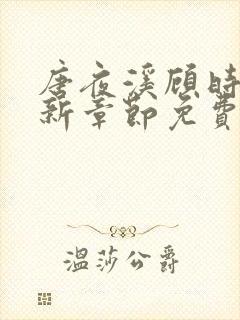 唐夜溪顾时
新章节免费
温莎公爵